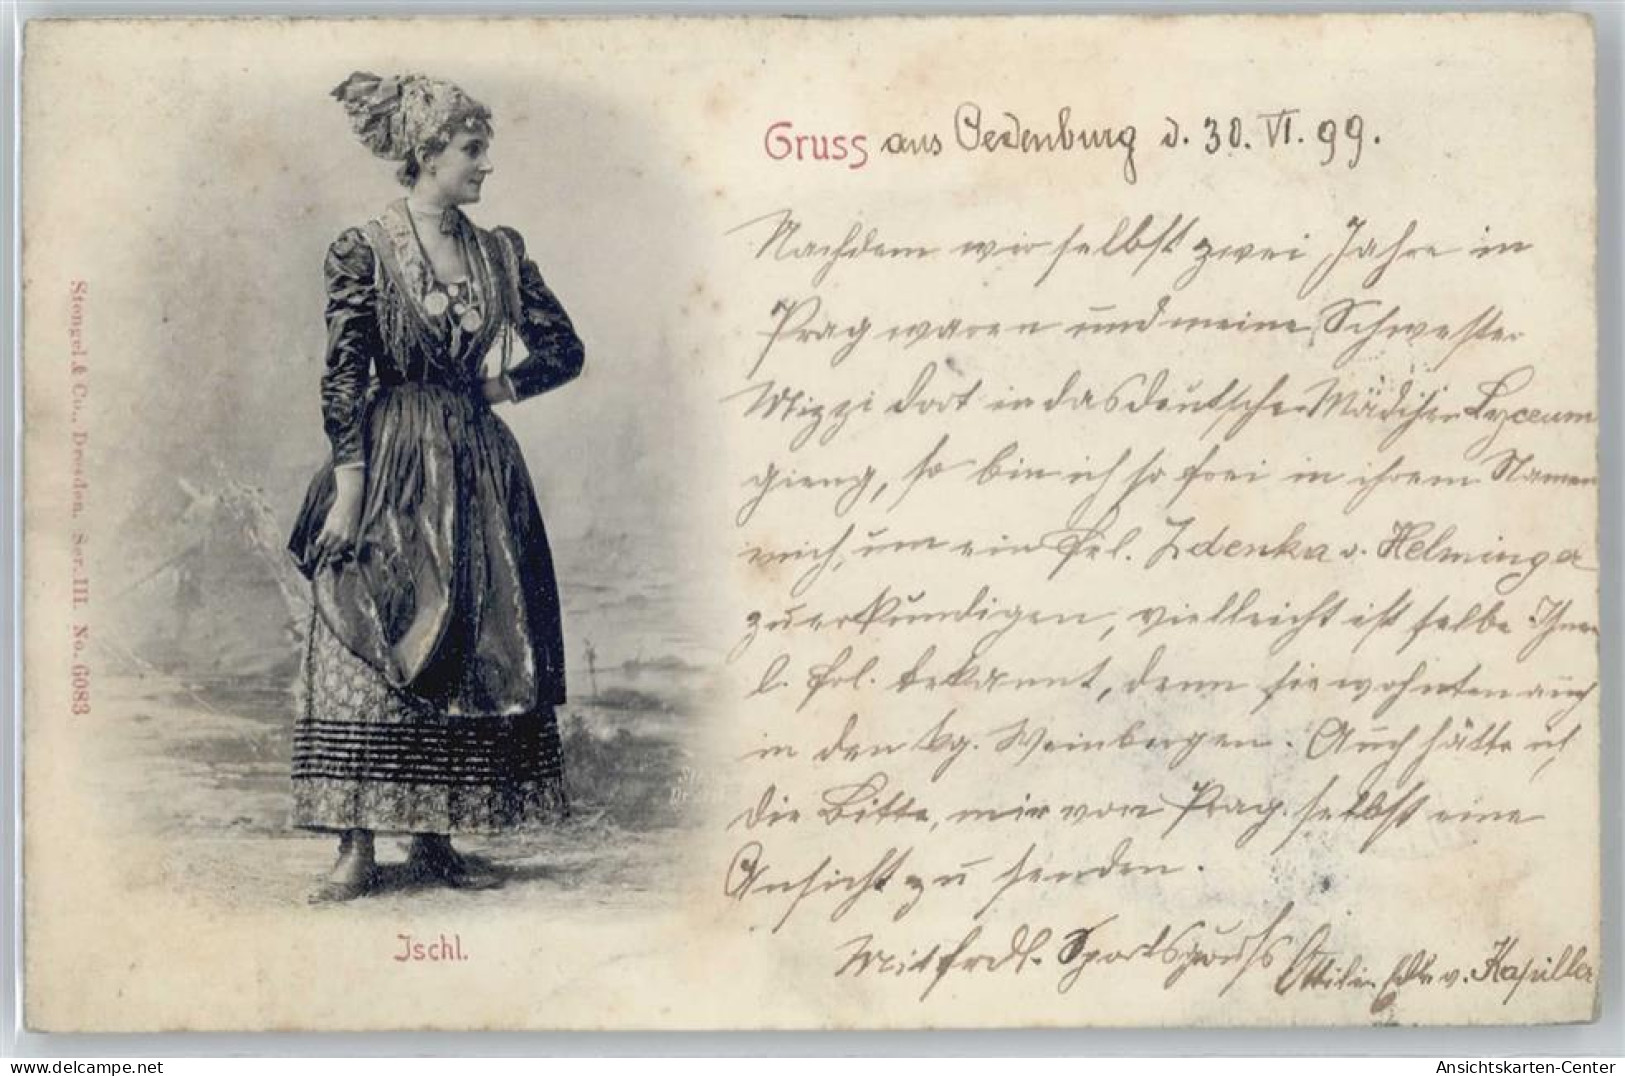 Gruss aus Oedenburg d. 30. VI. 99.
Nachdem wir selbst zwei Jahre in
Prag waren und meine Schwester
Mizzi dort in das deutsche Mädchen Lyceum
gieng, so bin ich so frei in ihrem Namen
mich, um ein Frl. Zdenka v. Helminga
zu erkundigen, vielleicht ist selbe Ihnen
l. Frl. bekannt, denn sie wohnten auch
in den kg. Weinbergen. Auch hätte ich
die Bitte, mir von Prag selbst eine
Ansicht zu senden.
Mit frdl. Sportsgruß Ottilie Edle v. Kapiller
Stengel & Co., Dresden. Ser. III. No. 6083
Ischl.
Ansichtskarten-Center
www.delcampe.net